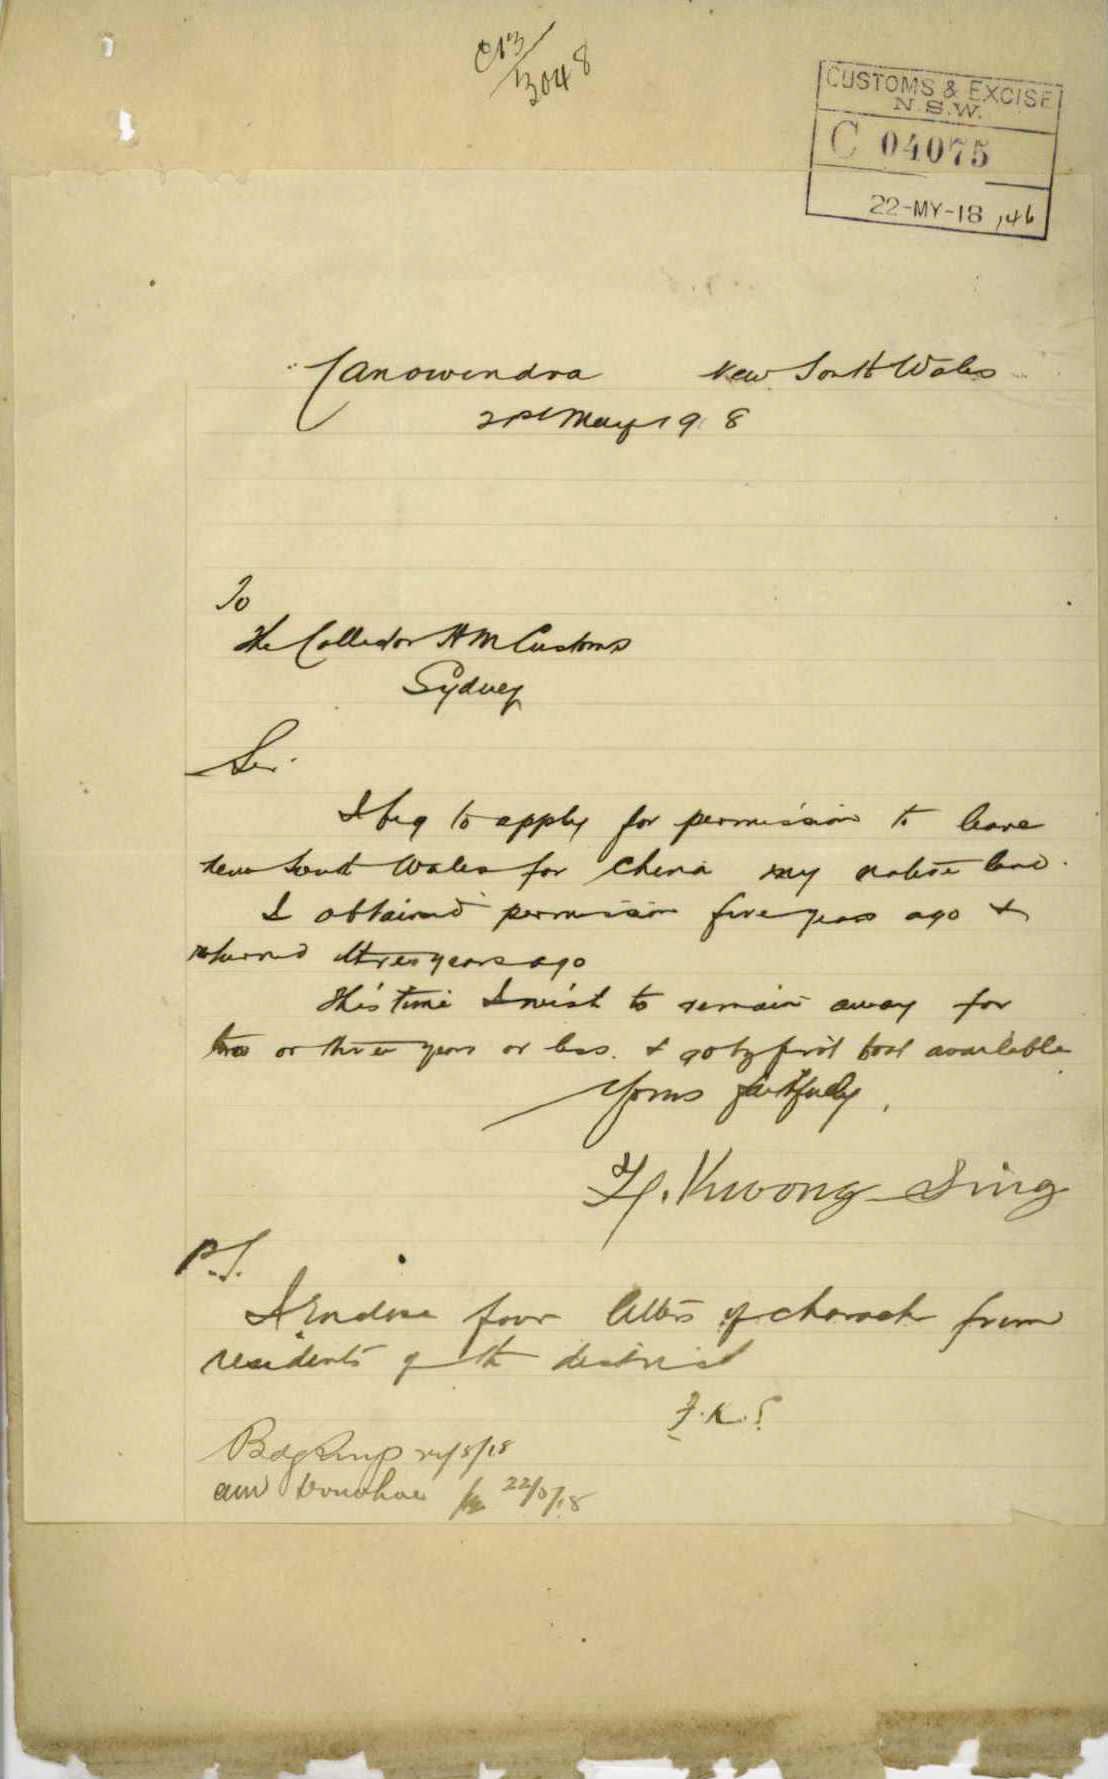 C13/3048
CUSTOMS & EXCISE
N.S.W.
C 04075
22-MY-18 ,46
Canowindra New South Wales
21st May 19 8
To
The Collector H M Customs
Sydney
Sir.
I beg to apply for permission to leave
New South Wales for China my native land.
I obtained permission five years ago &
returned three years ago
This time I wish to remain away for
two or three years or less. & go by first boat available
Yours faithfully,
H. Kwong Sing
P.S.
I Enclose four letters of character from
residents of the district
F. K. S
22/5/18
Donohoe 22/5/18